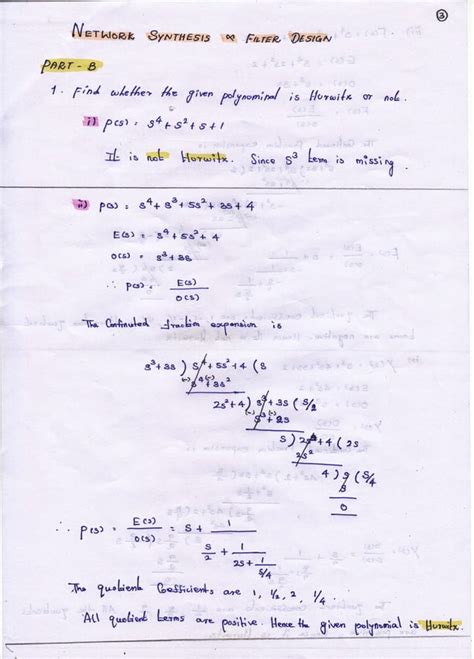 ③
NETWORK SYNTHESIS & FILTER DESIGN
PART - B
1. Find whether the given polynominal is Hurwitx or not.
i) P(s) = S⁴ + S² + S + 1
It is not Hurwitx. Since S³ term is missing.
ii) P(s) = S⁴ + S³ + 5S² + 3S + 4
E(s) = S⁴ + 5S² + 4
O(s) = S³ + 3S
∴ P(s) = E(s)/O(s)
The Continuted fraction expansion is
S³+3S ) S⁴+5S²+4 ( S
(-) S⁴ (-) +3S²
2S²+4 ) S³+3S ( S/2
(-) S³ (-) +2S
S ) 2S²+4 ( 2S
2S²
4 ) S ( S/4
S
0
∴ P(s) = E(s)/O(s) = S + 1
S/2 + 1
2S + 1
S/4
The quotient Coefficients are 1, 1/2, 2, 1/4.
All quotient terms are positive. Hence the given polynomial is Hurwitx.